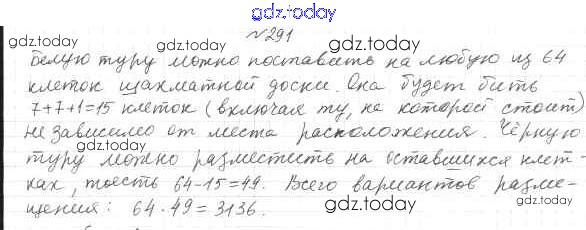 gdz.today
№291
gdz.today
gdz.today
Белую туру можно поставить на любую из 64
клеток шахматной доски. Она будет бить
7+7+1=15 клеток (включая ту, на которой стоит)
независимо от места расположения. Чёрную
gdz.today
gdz.today
туру можно разместить на оставшихся клет-
ках, тоесть 64-15=49. Всего вариантов разме-
щения: 64·49=3136.
gdz.today